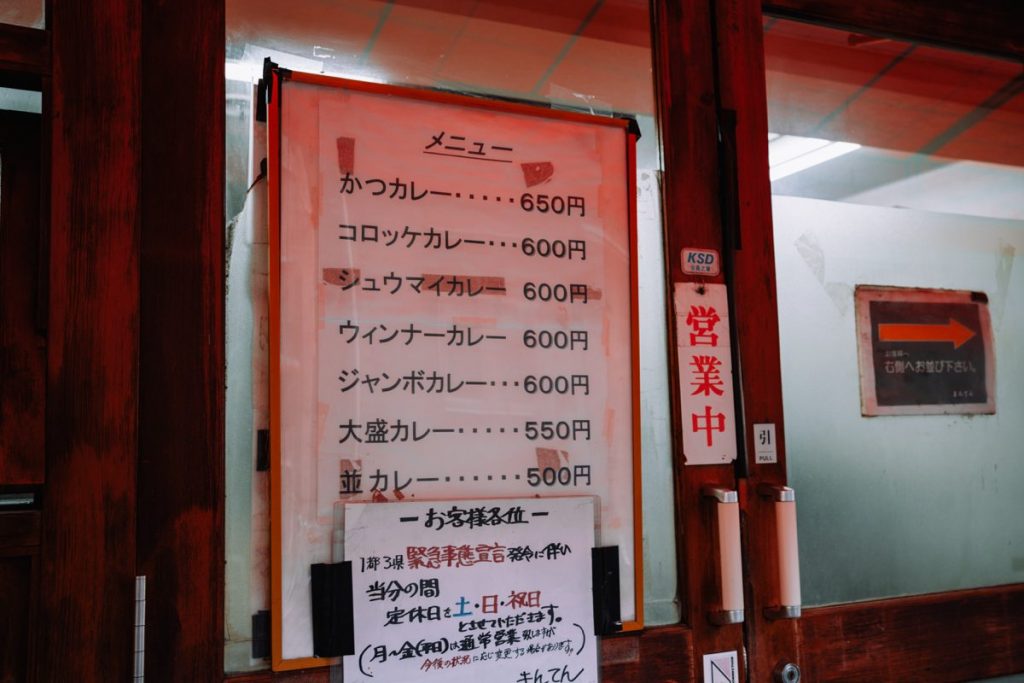 メニュー
かつカレー・・・・・650円
コロッケカレー・・・600円
シュウマイカレー 600円
ウィンナーカレー・・600円
ジャンボカレー・・・600円
大盛カレー・・・・・550円
並カレー・・・・・・500円
ーお客様各位ー
1都3県緊急事態宣言発令に伴い
当分の間
定休日を土・日・祝日
とさせていただきます。
(月〜金(平日)は通常営業致しますが
今後の状況に応じ変更する場合があります。)
まんてん
KSD
営業中
引
PULL
お客様へ
右側へお並び下さい。
まんてん